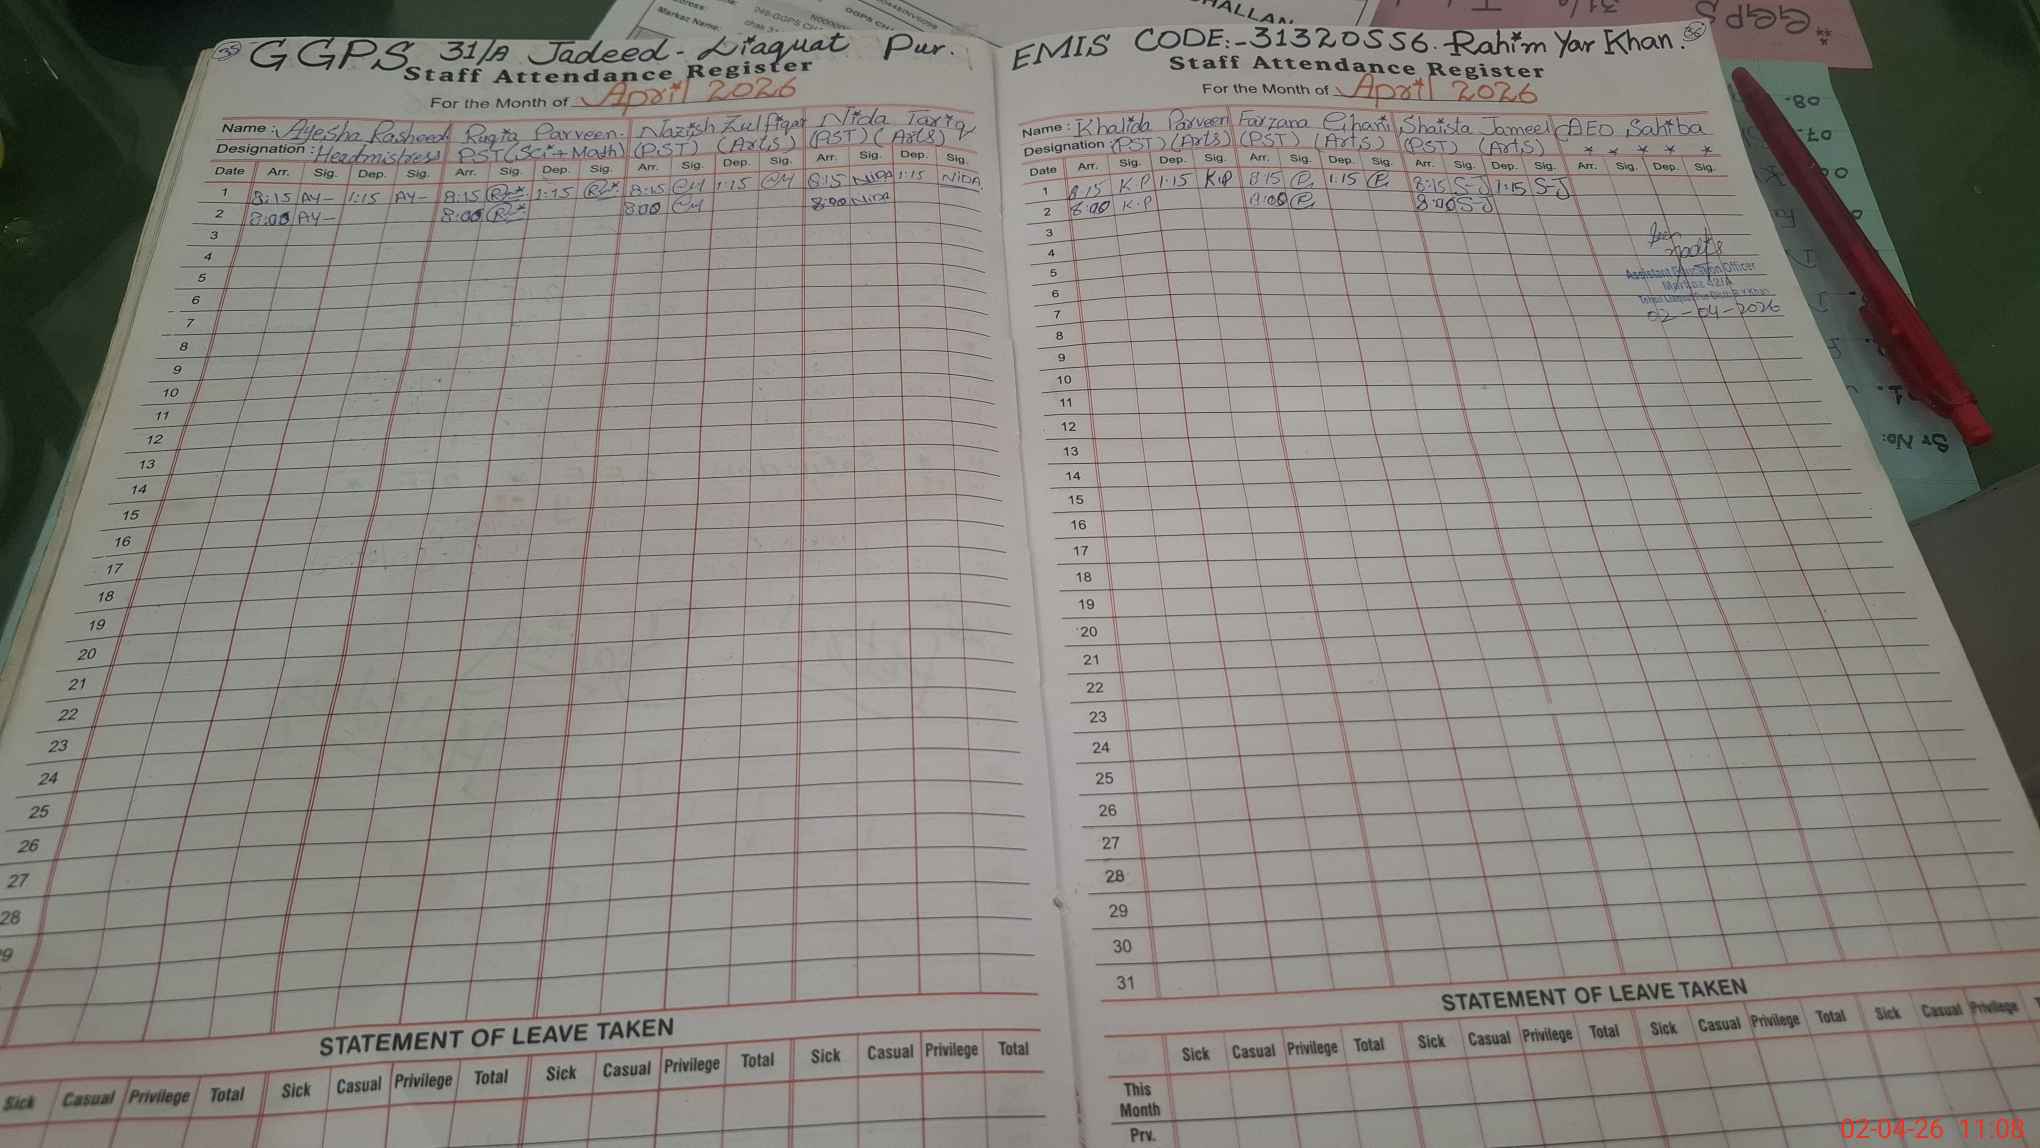 35 GGPS 31/A Jadeed - Liaquat Pur.
Staff Attendance Register
For the Month of April 2026
Name: Ayesha Rasheed Ruqia Parveen. Nazish Zulfiqar Nida Tariq
Designation: Headmistress PST (Sci + Math) (PST) (Arts) (PST) (Arts)
Date Arr. Sig. Dep. Sig. Arr. Sig. Dep. Sig. Arr. Sig. Dep. Sig. Arr. Sig. Dep. Sig.
1 8:15 AY- 1:15 AY- 8:15 1:15 8:15 1:15 8:15 NIDA 1:15 NIDA
2 8:00 AY- 8:00 8:00 8:00 Nida
3
4
5
6
7
8
9
10
11
12
13
14
15
16
17
18
19
20
21
22
23
24
25
26
27
28
9
STATEMENT OF LEAVE TAKEN
Sick Casual Privilege Total Sick Casual Privilege Total Sick Casual Privilege Total Sick Casual Privilege Total
EMIS CODE:- 31320556. Rahim Yar Khan. 36
Staff Attendance Register
For the Month of April 2026
Name: Khalida Parveen Farzana Ghani Shaista Jameel AEO Sahiba
Designation: (PST) (Arts) (PST) (Arts) (PST) (Arts) * * * * *
Date Arr. Sig. Dep. Sig. Arr. Sig. Dep. Sig. Arr. Sig. Dep. Sig. Arr. Sig. Dep. Sig.
1 8:15 K.P 1:15 K.P 8:15 1:15 8:15 S-J 1:15 S-J
2 8:00 K.P 8:00 8:00 S-J
3
4
5
6
7
8
9
10
11
12
13
14
15
16
17
18
19
20
21
22
23
24
25
26
27
28
29
30
31
Assistant Education Officer
Markaz 42/A
02-04-2026
STATEMENT OF LEAVE TAKEN
Sick Casual Privilege Total Sick Casual Privilege Total Sick Casual Privilege Total Sick Casual Privilege
This
Month
Prv.
Markaz Name:
CHALLAN
GGPS 31/
Sr No:
08.
07.
02-04-26 11:08